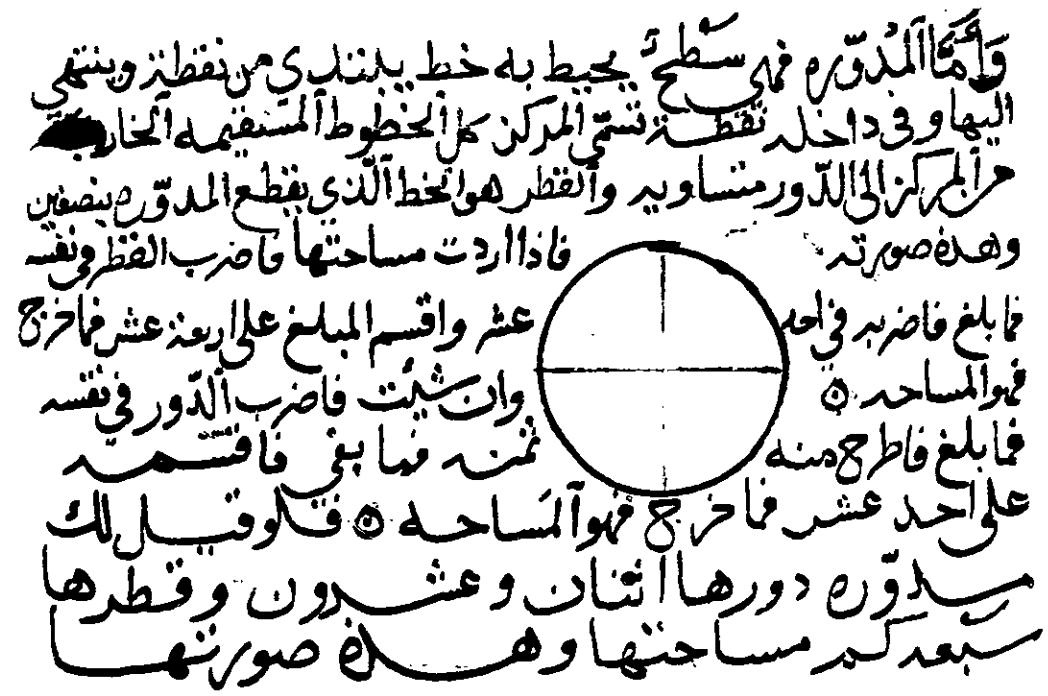 وَأَمَّا ٱلْمُدوّره فهى سَطْحٌ يحيط به خط يبتدى من نقطة وينتهى
اليها وفى داخله نقطة تسمّى المركز كل ٱلخطوط ٱلمستقيمه ٱلخارجه
من ٱلمركز الى الدّور متساويه وٱلقطر هو الخط ٱلّذي يقطع المدوّره بنصفين
وهذه صورته فاذا اردت مساحتها فاضرب القطر فى نفسه
فما بلغ فاضربه فى احد عشر واقسم المبلغ على اربعة عشر فما خرج
فهو المساحه ۞ وان شئت فاضرب ٱلدّور في نفسه
فما بلغ فاطرح منه ثمنه فما بقى فاقسمه
على احد عشر فما خرج فهو ٱلمَساحه ۞ فلو قيل لك
مدوّره دورها اثنان وعشرون وقطرها
سَبعه كم مساحتها وهذه صورتها